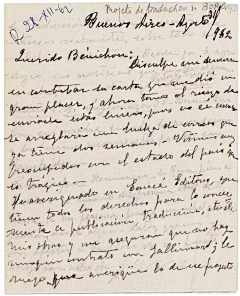 Projets de traduction de Bor
R. 28-XII-62
Buenos Aires - Agosto 30
1962
Querido Bénichou: Disculpe mi demora
en contestar su carta que me dió un
gran placer, y ahora tomo el riesgo de
enviarle estas líneas, pues no se
arreglará una huelga de correos que
ya tiene dos semanas - Vivimos muy
preocupados con el estado del país que
es trágico -
He averiguado en Emecé Editores, que
tienen todos los derechos para lo concer-
niente a publicación, traducción, etc. de
mis obras y me aseguran que no hay
ningún contrato con Gallimard; le
ruego que averigüe lo de ese proyecto